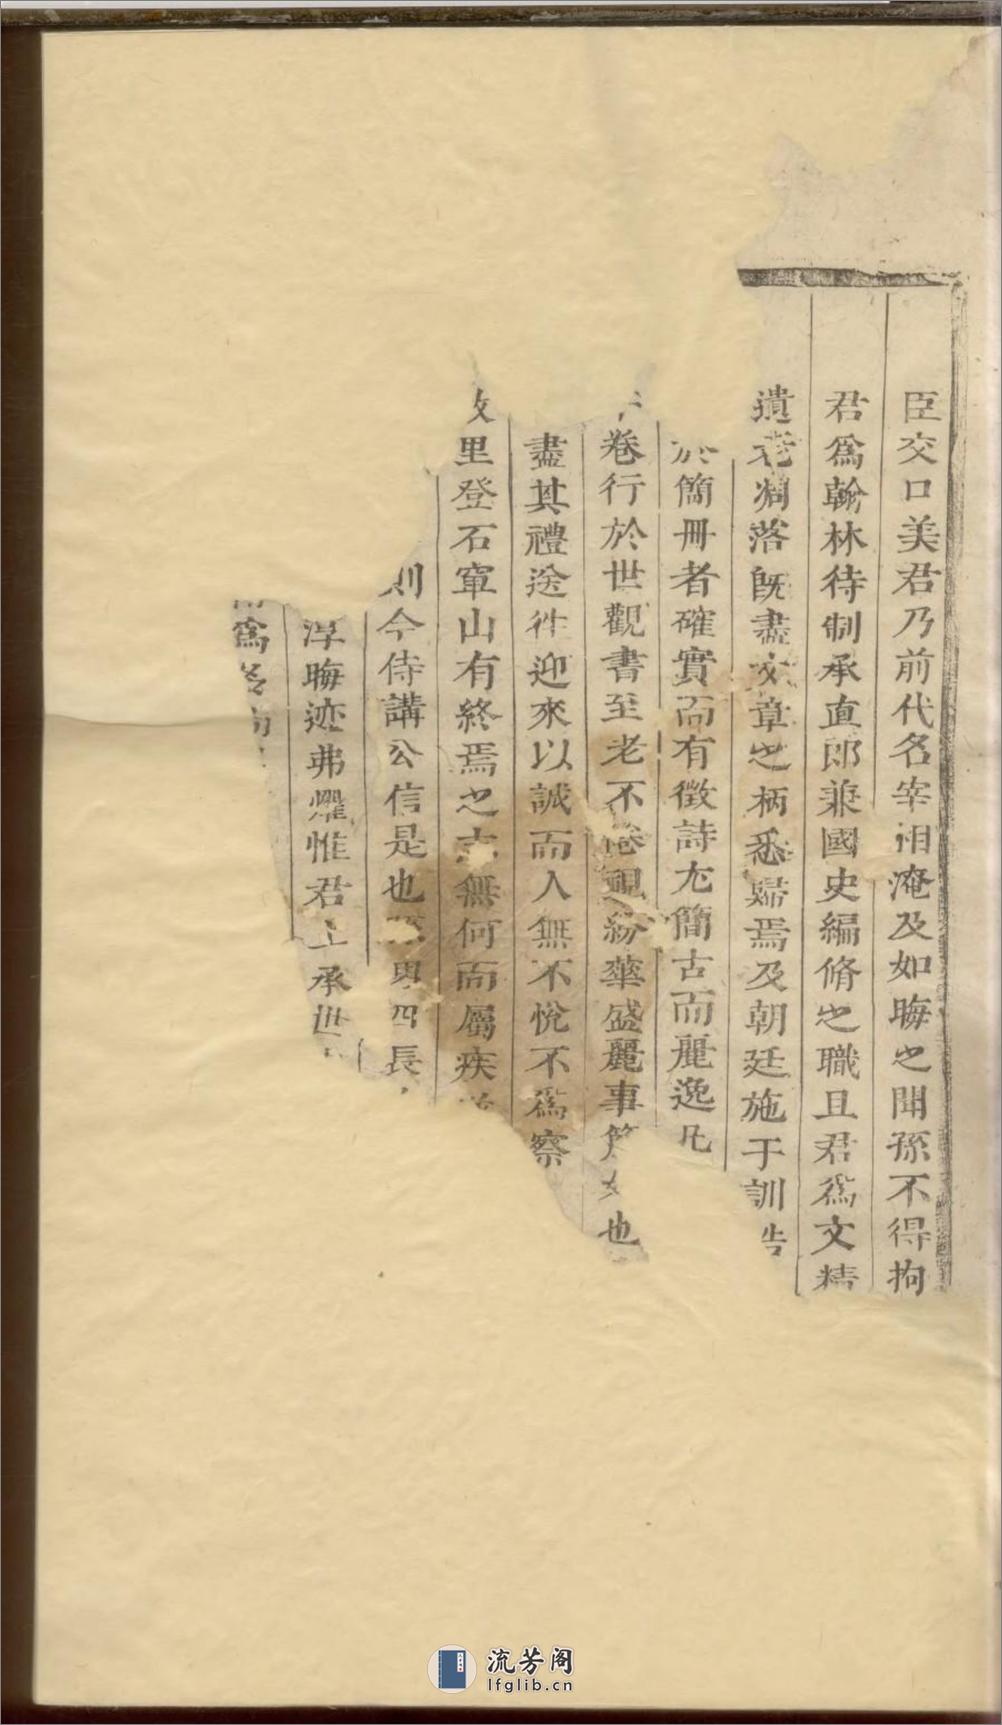 臣交口美君乃前代名宰相淹及如晦之聞孫不得拘
君爲翰林待制承直郎兼國史編脩之職且君爲文精
遺老凋落既盡文章之柄悉歸焉及朝廷施于訓誥
於簡冊者確實而有徵詩尤簡古而麗逸凡
卷行於世觀書至老不倦視紛華盛麗事篾如也
盡其禮送往迎來以誠而人無不悅不爲察
故里登石窜山有終焉之志無何而屬疾
則今侍講公信是也 男四長
淳晦迹弗耀惟君上承世
爲
流芳阁
lfglib.cn